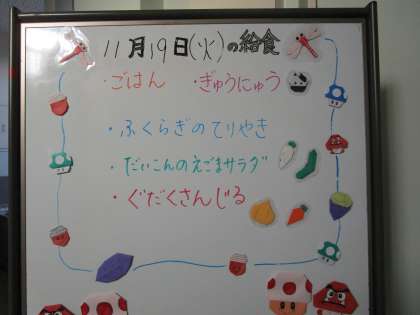 11月19日(火)の給食
・ごはん ・ぎゅうにゅう
・ふくらぎのてりやき
・だいこんのえごまサラダ
・ぐだくさんじる